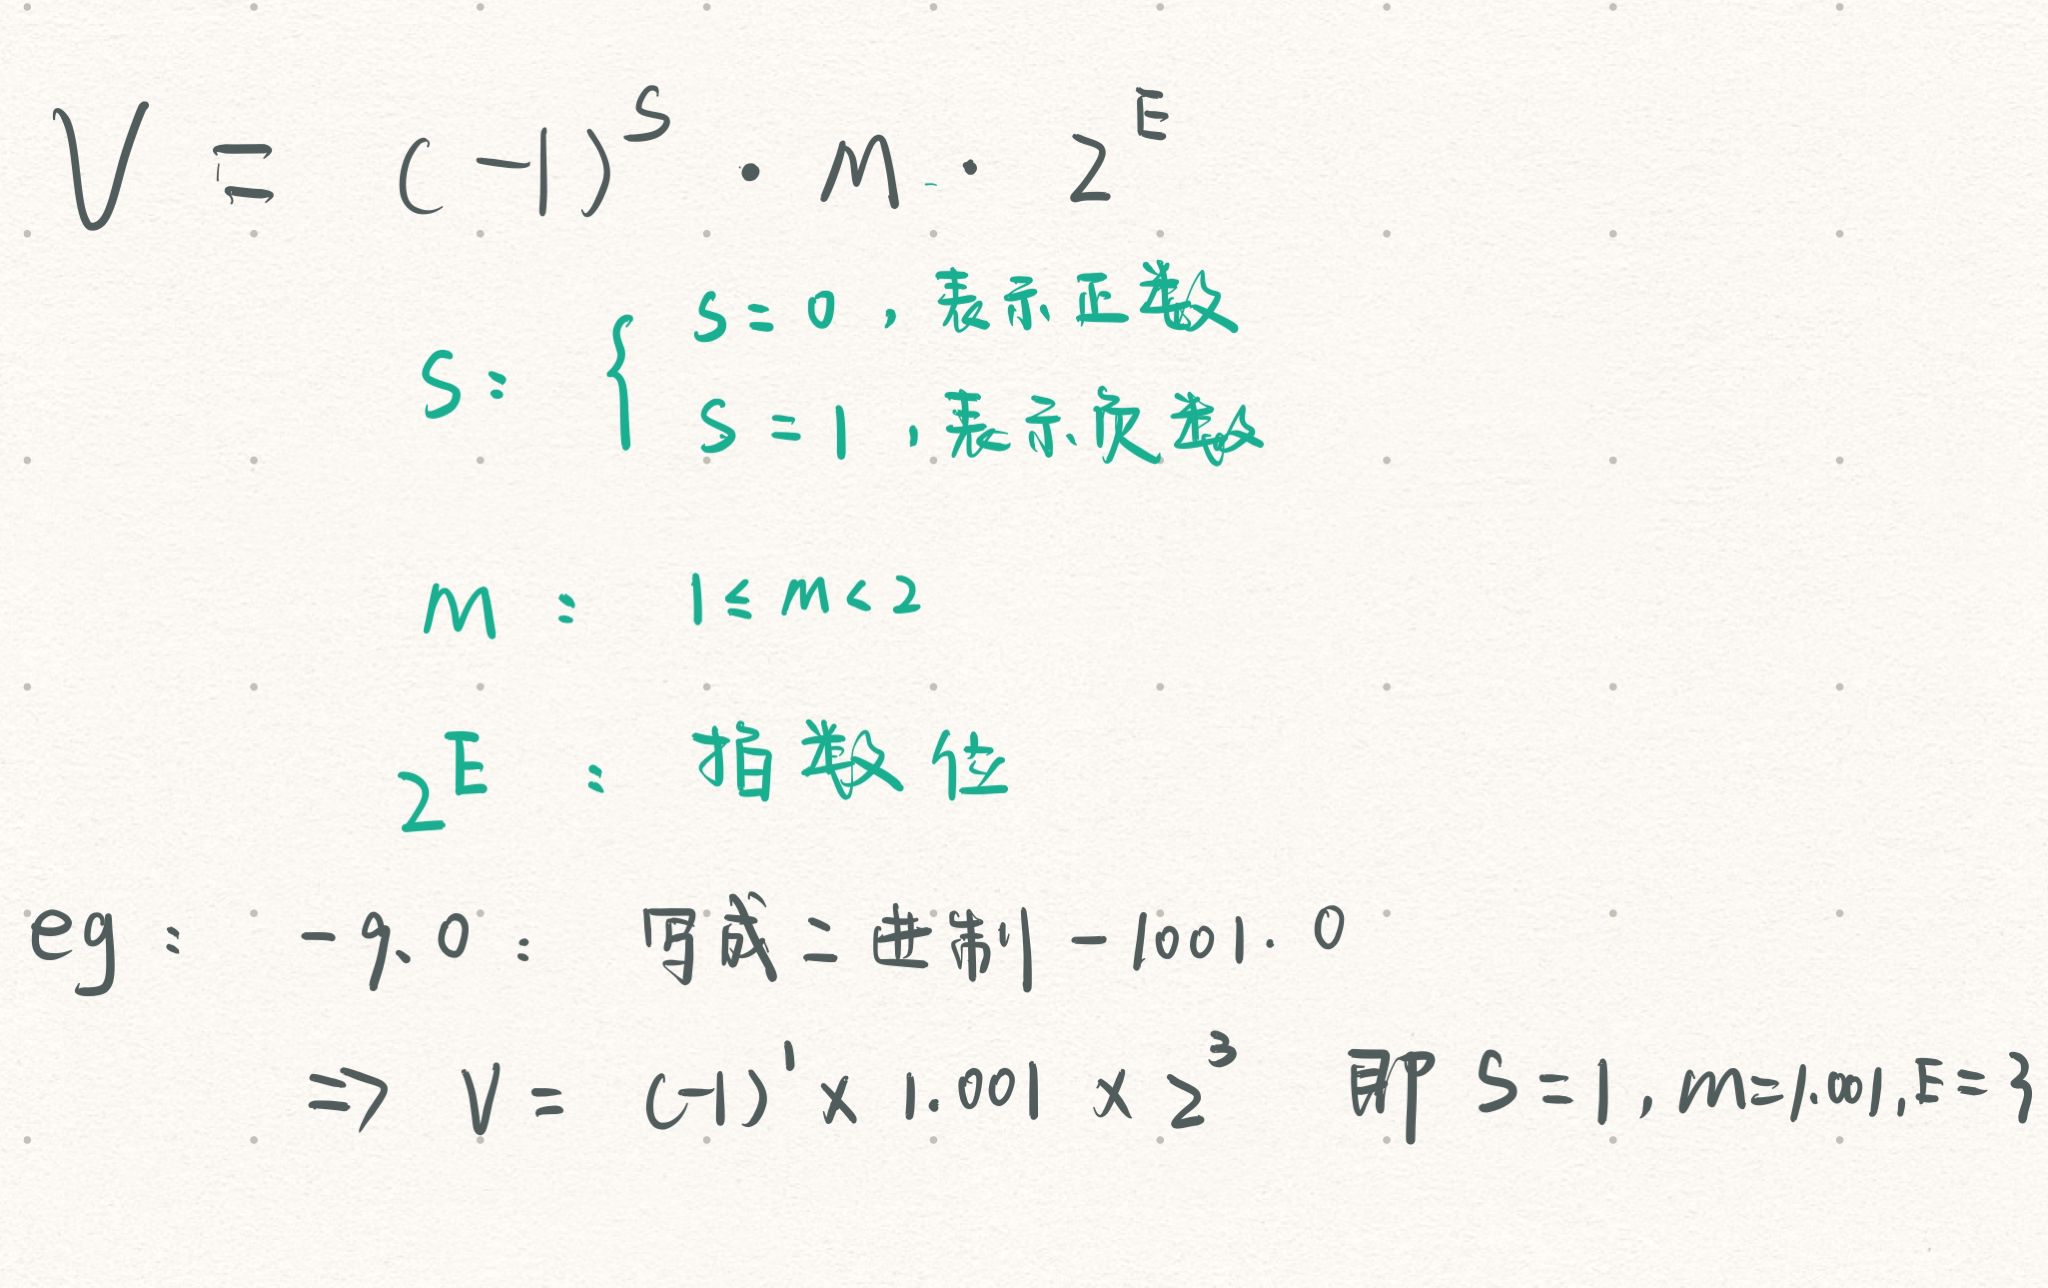 V = (-1)^S · M · 2^E
S: { S = 0, 表示正数
S = 1, 表示负数
M : 1 ≤ M < 2
2^E : 指数位
eg: -9.0: 写成二进制 -1001.0
=> V = (-1)^1 × 1.001 × 2^3 即 S = 1, M=1.001, E = 3